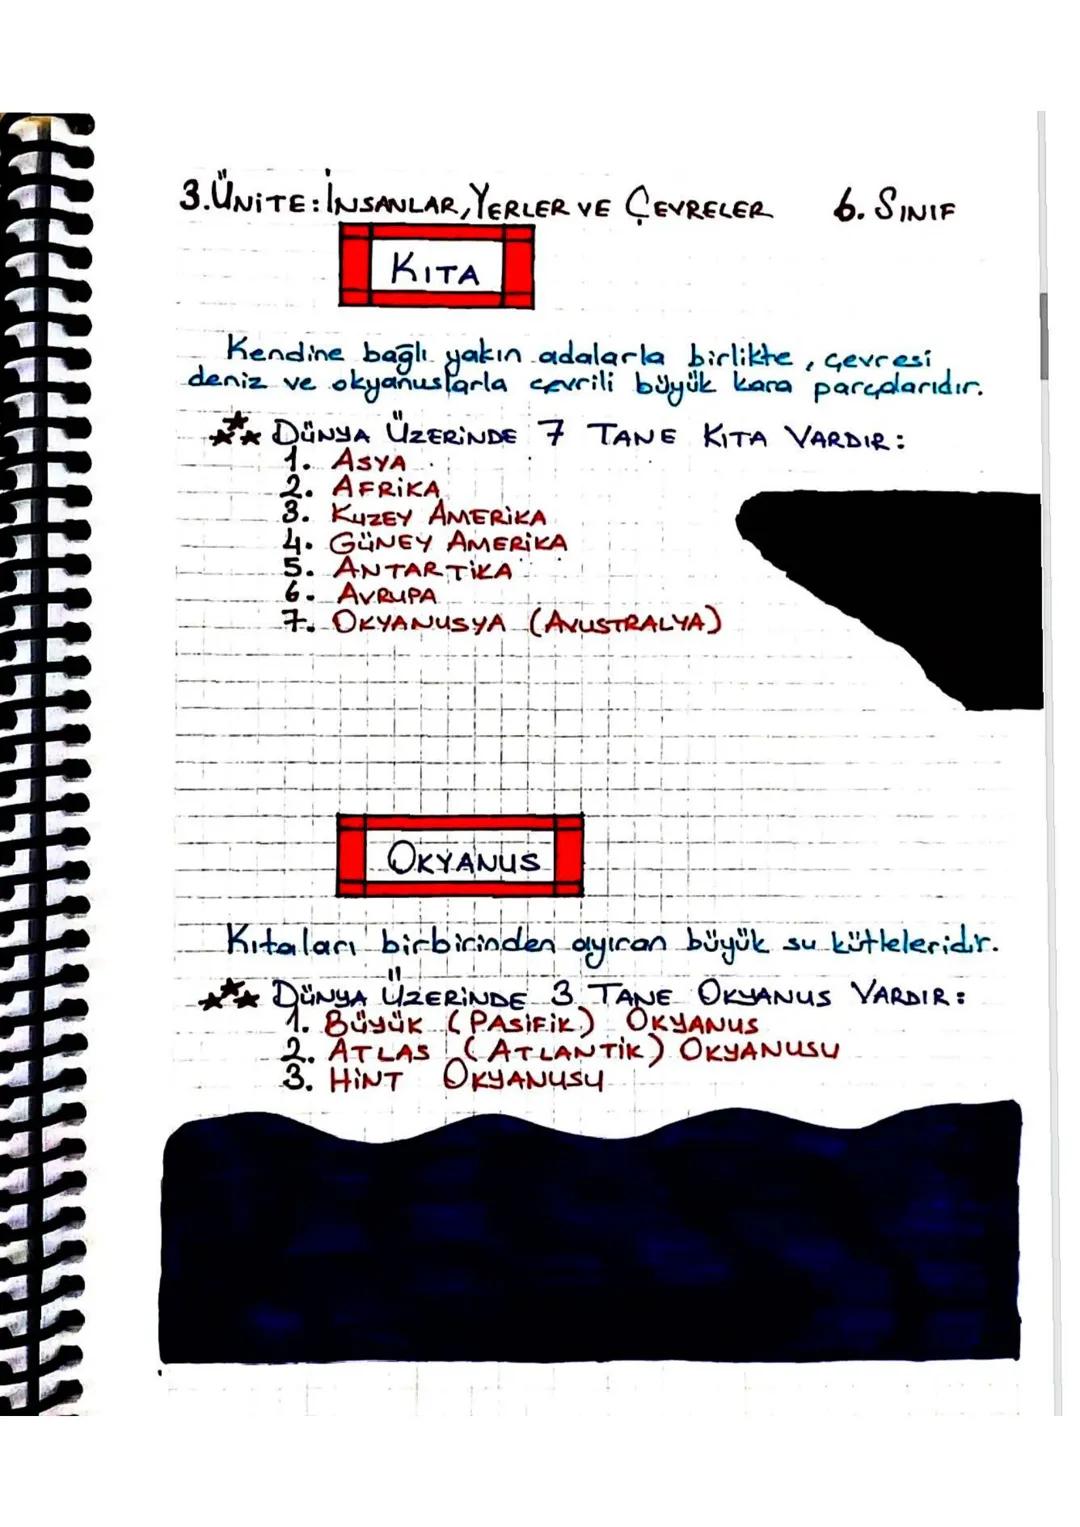 3.ÜNİTE: İNSANLAR, YERLER VE ÇEVRELER 6. SINIF
KITA
Kendine bağlı yakın adalarla birlikte, çevresi
deniz ve okyanuslarla çevrili büyük kara parçalarıdır.
DÜNYA ÜZERİNDE 7 TANE KITA VARDIR:
1. ASYA
2. AFRİKA
3. KUZEY AMERİKA
4. GÜNEY AMERİKA
5. ANTARTİKA
6. AVRUPA
7. OKYANUSYA (AVUSTRALYA)
OKYANUS
Kıtaları birbirinden ayıran büyük su kütleleridir.
DÜNYA ÜZERİNDE 3 TANE OKYANUS VARDIR:
1. BÜYÜK (PASİFİK) OKYANUS
2. ATLAS (ATLANTİK) OKYANUSU
3. HİNT OKYANUSU